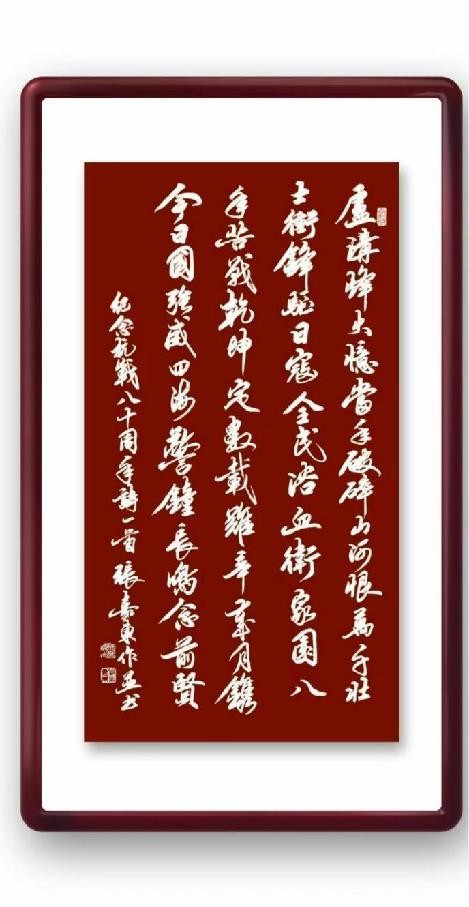 盧溝烽火憶當年破碎山河恨萬千壯
士衝鋒驅日寇全民浴血衛家園八
年苦戰乾坤定數載艱辛歲月鐫
今日國強威四海警鐘長鳴念前賢
紀念抗戰八十周年詩一首張嘉東作並書